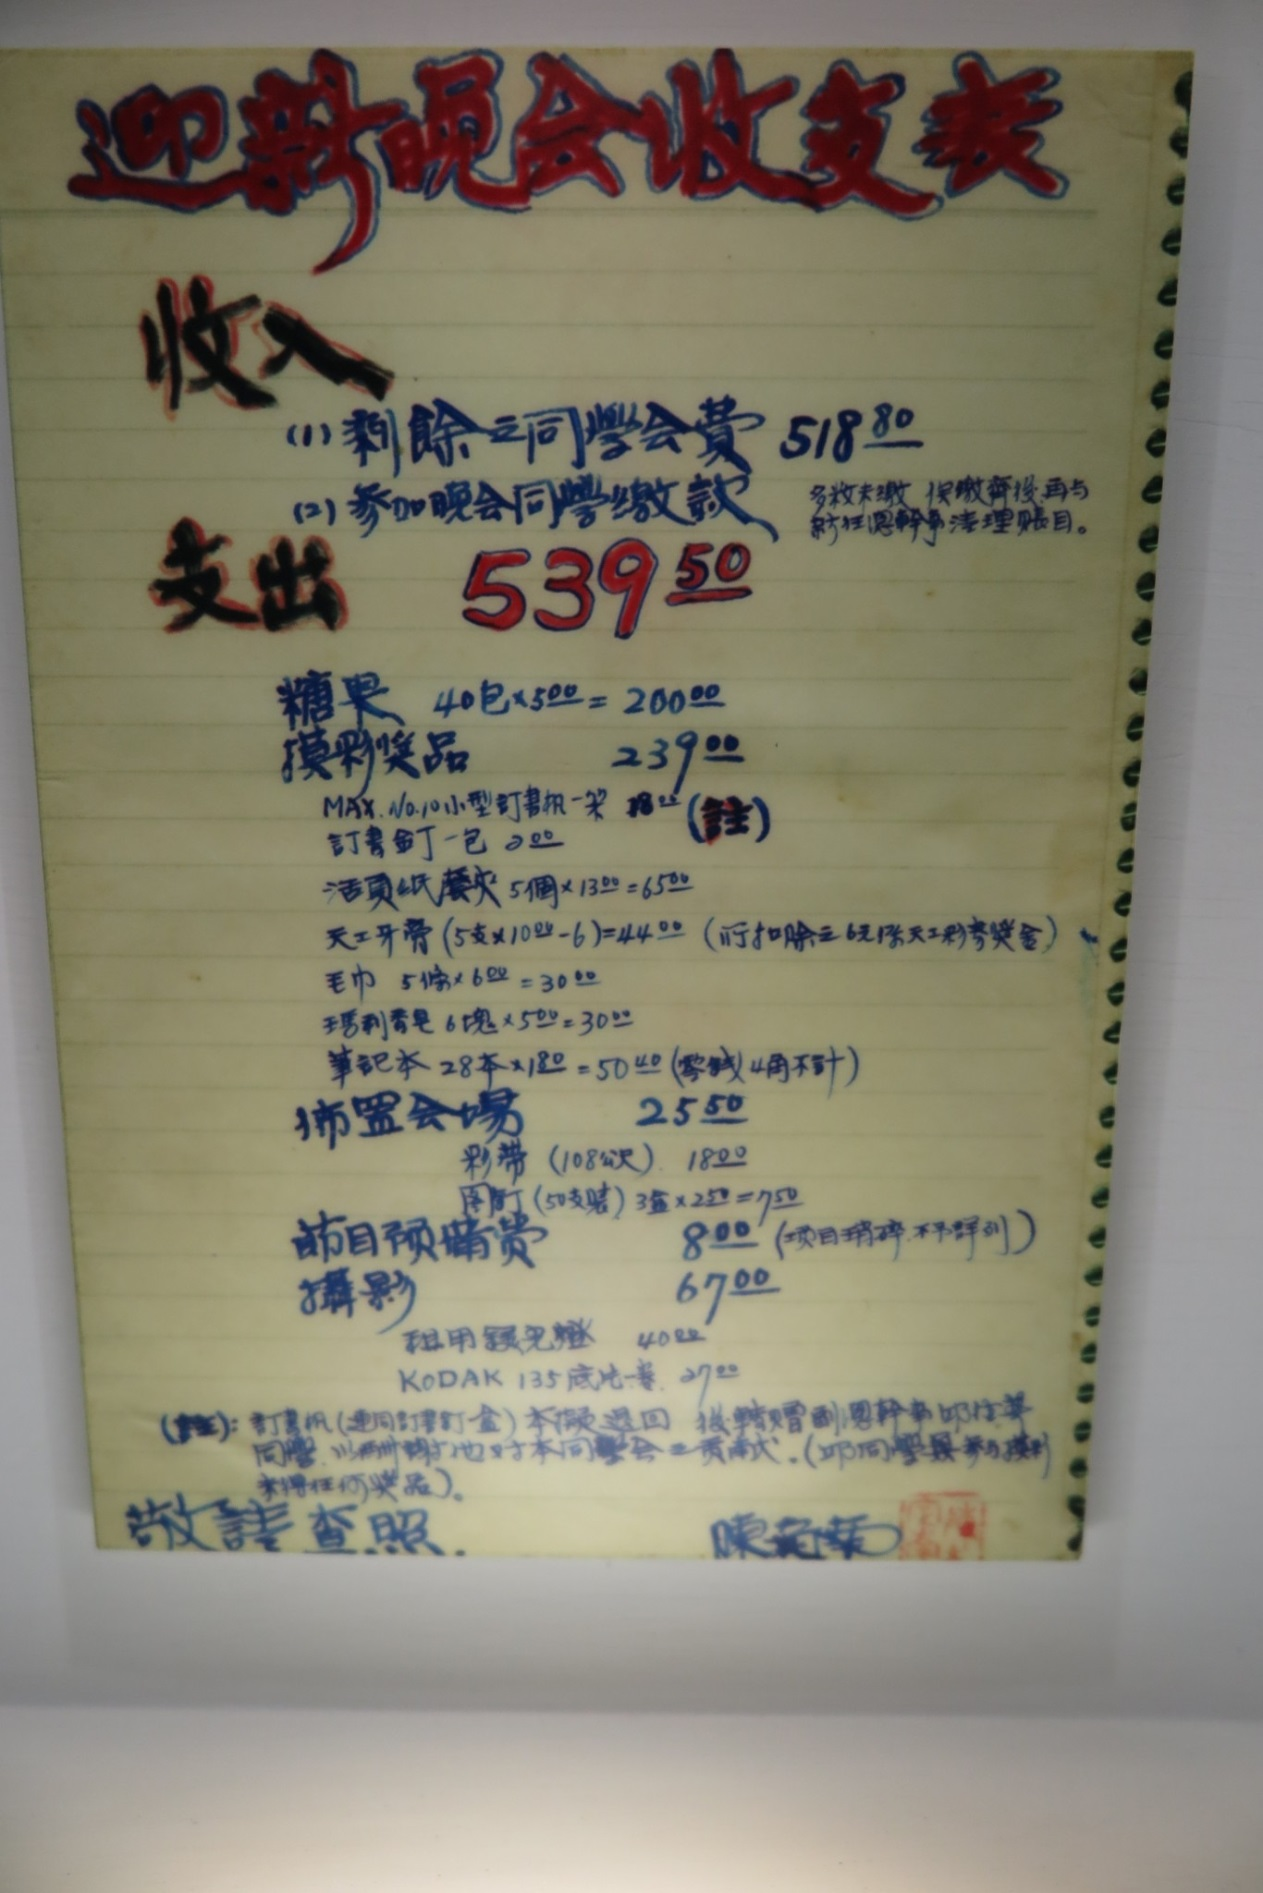 迎新晚会收支表
收入
(1) 剩餘之同學会費 518 80
(2) 参加晚会同學繳款 多数未繳 俟繳齊後再与
幹事清理賬目。
支出 539 50
糖果 40包×5 00 = 200 00
摸彩獎品 239 00
MAX. No.10小型訂書机一架 18 00 (註)
訂書釘一包 2 00
活頁紙夾 5個×13 00 = 65 00
天工牙膏 (5支×10 00 - 6) = 44 00 (所扣除之6元係天工彩券獎金)
毛巾 5條×6 00 = 30 00
瑪利香皂 6塊×5 00 = 30 00
筆記本 28本×1 80 = 50 40 (零錢4角不計)
佈置会場 25 50
彩帶 (108公尺) 18 00
图釘 (50支裝) 3盒×2 50 = 7 50
節目预備費 8 00 (项目瑣碎 不予詳列)
攝影 67 00
租用鎂光燈 40 00
KODAK 135底片一卷 27 00
(註): 訂書机(連同訂書釘一盒)本擬退回 後轉贈副總幹事邱
同學 以酬謝他对本同學会之貢献. (邱同學未参与摸彩
未得任何獎品).
敬請查照.
陳